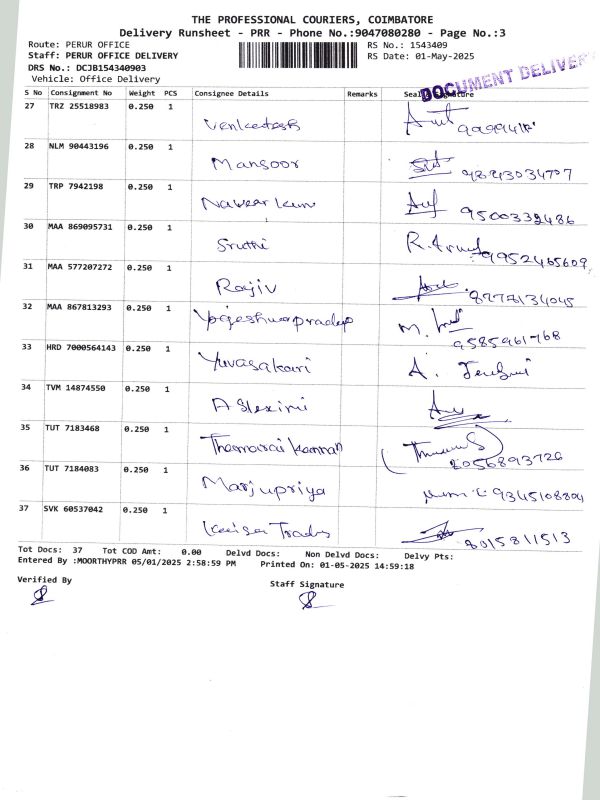 THE PROFESSIONAL COURIERS, COIMBATORE
Delivery Runsheet - PRR - Phone No.:9047080280 - Page No.:3
Route: PERUR OFFICE RS No.: 1543409
Staff: PERUR OFFICE DELIVERY RS Date: 01-May-2025
DRS No.: DCJB154340903
Vehicle: Office Delivery
DOCUMENT DELIVER
S No Consignment No Weight PCS Consignee Details Remarks Seal
27 TRZ 25518983 0.250 1
Venkatesh
28 NLM 90443196 0.250 1
Mansoor
29 TRP 7942198 0.250 1
9500332486
30 MAA 869095731 0.250 1
Sruthi 9952465609
31 MAA 577207272 0.250 1
Rajiv
32 MAA 867813293 0.250 1
Yogeshwarpradeep
9585961768
33 HRD 7000564143 0.250 1
34 TVM 14874550 0.250 1
35 TUT 7183468 0.250 1
Thamarai Kannan
8056893726
36 TUT 7184083 0.250 1
Manjupriya
37 SVK 60537042 0.250 1
8015811513
Tot Docs: 37 Tot COD Amt: 0.00 Delvd Docs: Non Delvd Docs: Delvy Pts:
Entered By :MOORTHYPRR 05/01/2025 2:58:59 PM Printed On: 01-05-2025 14:59:18
Verified By Staff Signature